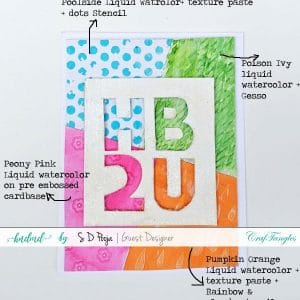 Poolside Liquid watrolor+ texture paste
+ dots Stencil
Poison Ivy
liquid
watercolor +
Gesso
HB
2U
Peony Pink
Liquid watercolor
on pre embossed
cardbase
handmade by S D Poja | Guest Designer CrafTangles
Pumpkin Orange
Liquid watercolor +
texture paste +
Rainbow &